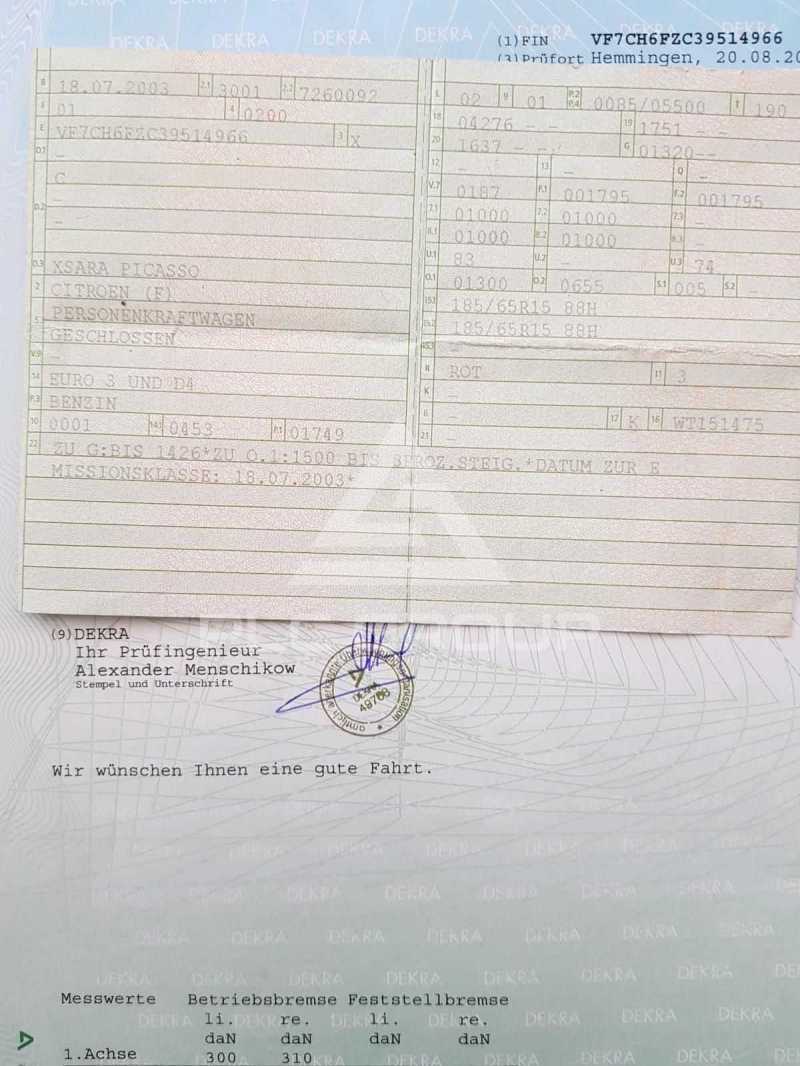 DEKRA DEKRA DEKRA DEKRA
(1)FIN VF7CH6FZC39514966
(3)Prüfort Hemmingen, 20.08.20
B 18.07.2003 2.1 3001 2.2 7260092
J 01 4 0200
E VF7CH6FZC39514966 3 X
D.1 -
C
-
D.2 -
D.3 XSARA PICASSO
2 CITROEN (F)
5 PERSONENKRAFTWAGEN
GESCHLOSSEN
V.9 -
14 EURO 3 UND D4
P.3 BENZIN
10 0001 14.1 0453 P.1 01749
22 ZU G:BIS 1426*ZU O.1:1500 BIS 8PROZ.STEIG.*DATUM ZUR E
MISSIONSKLASSE: 18.07.2003*
L 02 9 01 P.2 P.4 0085/05500 T 190
18 04276 - - 19 1751 - -
20 1637 - - G 01320--
12 - 13 - Q -
V.7 0187 F.1 001795 F.2 001795
7.1 01000 7.2 01000 7.3 -
8.1 01000 8.2 01000 8.3 -
U.1 83 U.2 - U.3 74
O.1 01300 O.2 0655 S.1 005 S.2 -
15.1 185/65R15 88H
15.2 185/65R15 88H
15.3 -
R ROT 11 3
K -
6 - 17 K 16 WT151475
21 -
(9)DEKRA
Ihr Prüfingenieur
Alexander Menschikow
Stempel und Unterschrift
DEKRA
49768
Wir wünschen Ihnen eine gute Fahrt.
DEKRA DEKRA DEKRA DEKRA
Messwerte Betriebsbremse Feststellbremse
li. re. li. re.
daN daN daN daN
1.Achse 300 310